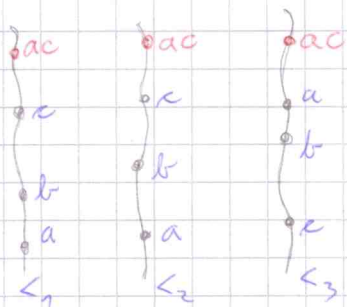 ac
c
b
a
<₁
ac
c
b
a
<₂
ac
a
b
c
<₃